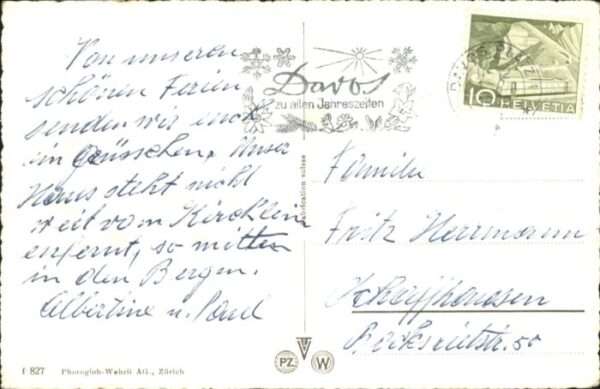 Von unseren
schönen Ferien
senden wir euch
ein Grüsschen. Unser
Haus steht nicht
weit vom Kirchlein
enfernt, so mitten
in den Bergen.
Albertine u. Paul
Davos
zu allen Jahreszeiten
DAVOS PLATZ
10 HELVETIA
Fabrication suisse
Familie
Fritz Herrmann
Schaffhausen
50
f 827 Photoglob-Wehrli AG., Zürich
PZ W